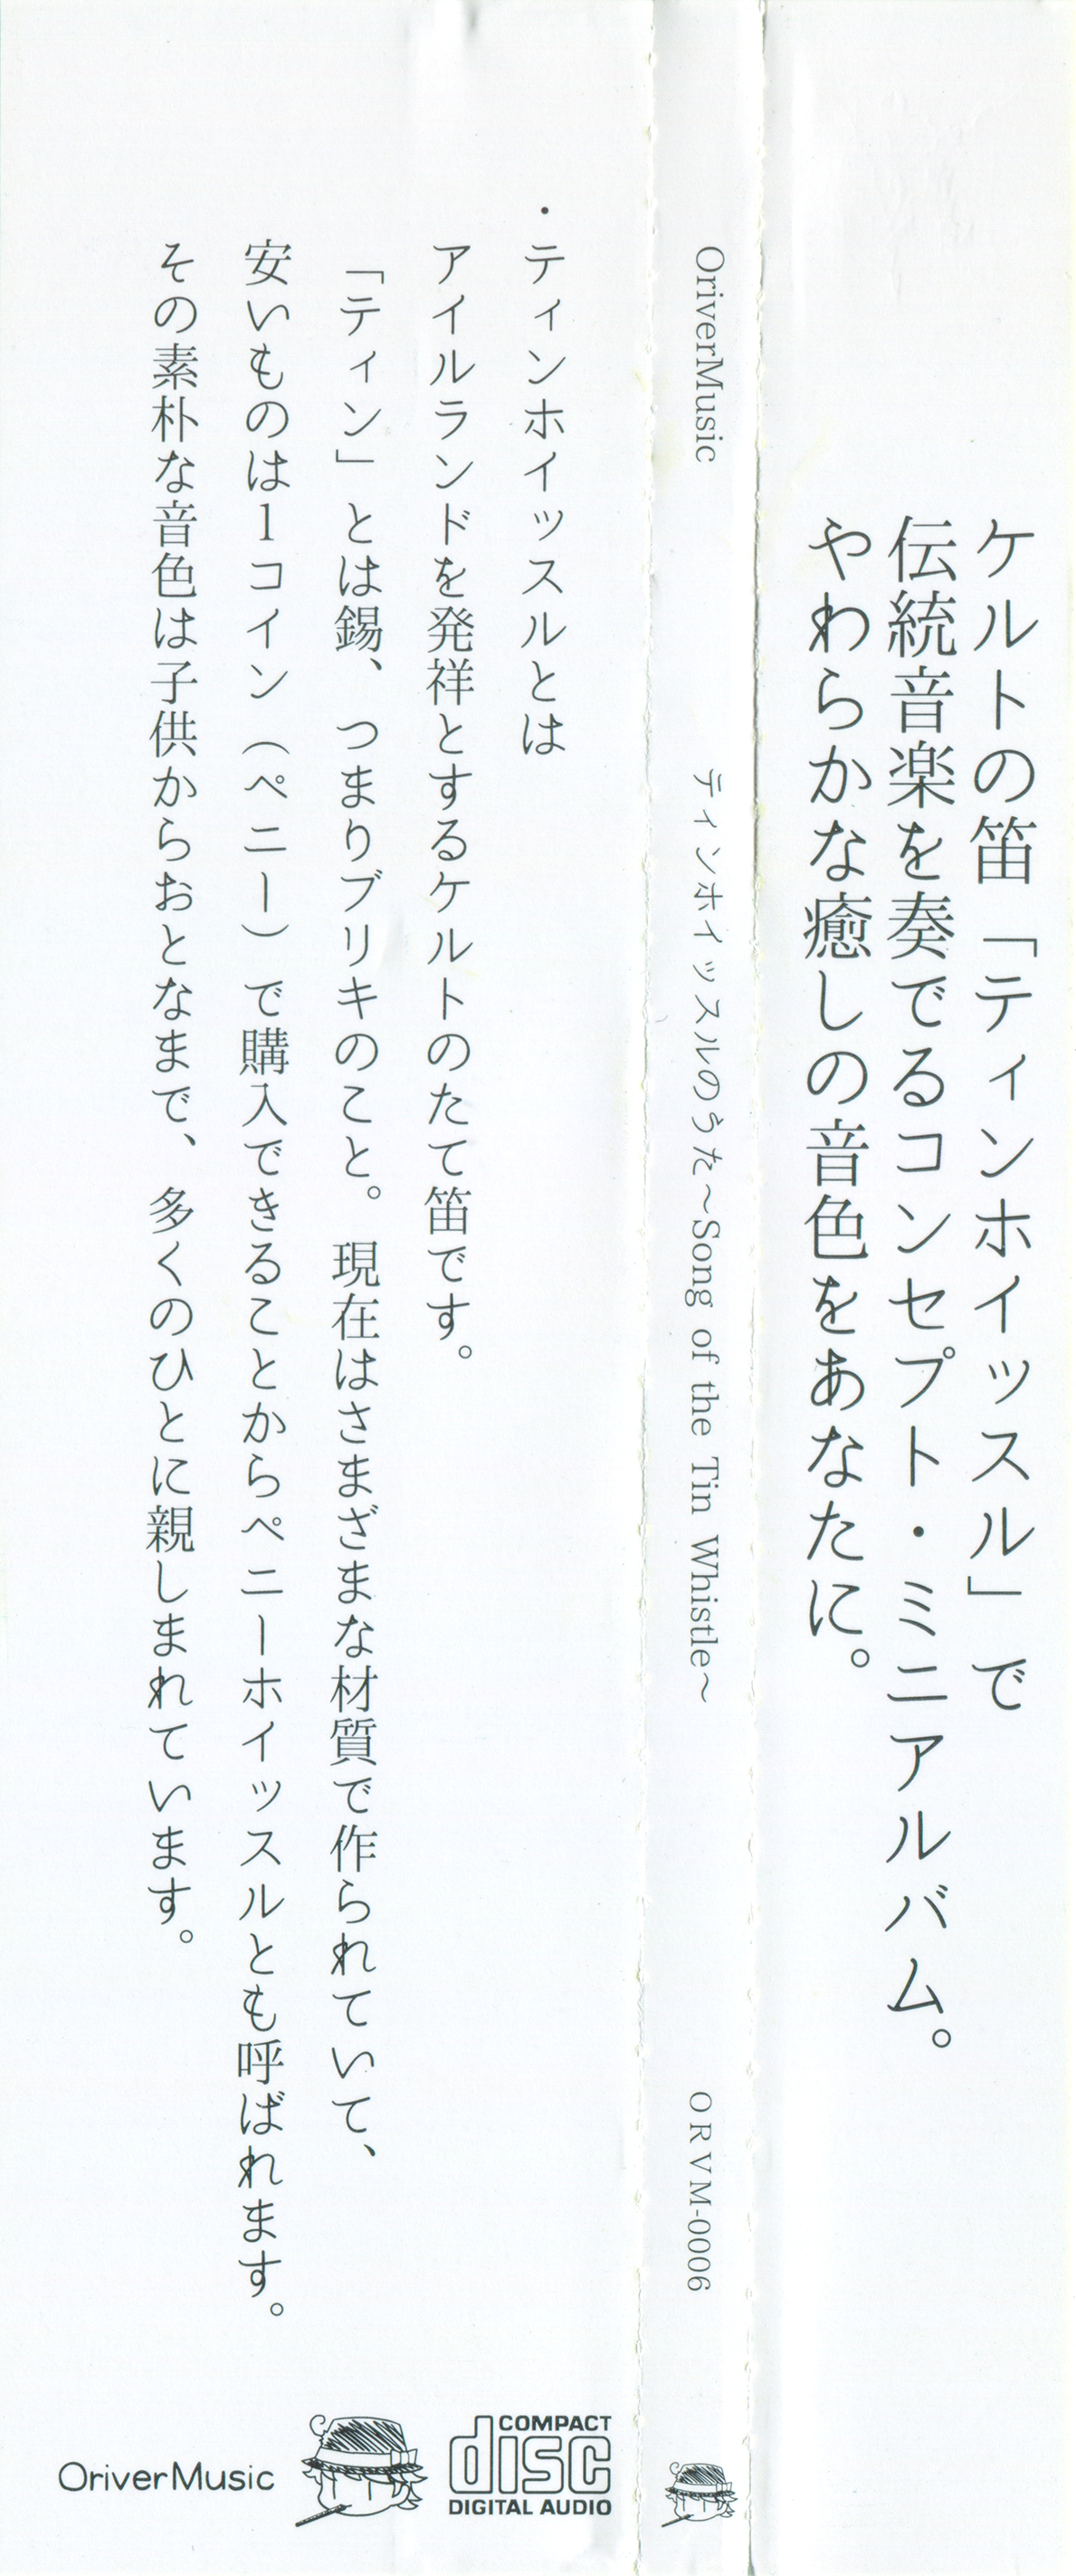 ケルトの笛「ティンホイッスル」で
伝統音楽を奏でるコンセプト・ミニアルバム。
やわらかな癒しの音色をあなたに。
OriverMusic
ティンホイッスルのうた~Song of the Tin Whistle~
ORVM-0006
・ティンホイッスルとは
アイルランドを発祥とするケルトのたて笛です。
「ティン」とは錫、つまりブリキのこと。現在はさまざまな材質で作られていて、
安いものは1コイン(ペニー)で購入できることからペニーホイッスルとも呼ばれます。
その素朴な音色は子供からおとなまで、多くのひとに親しまれています。
COMPACT
disc
DIGITAL AUDIO
OriverMusic